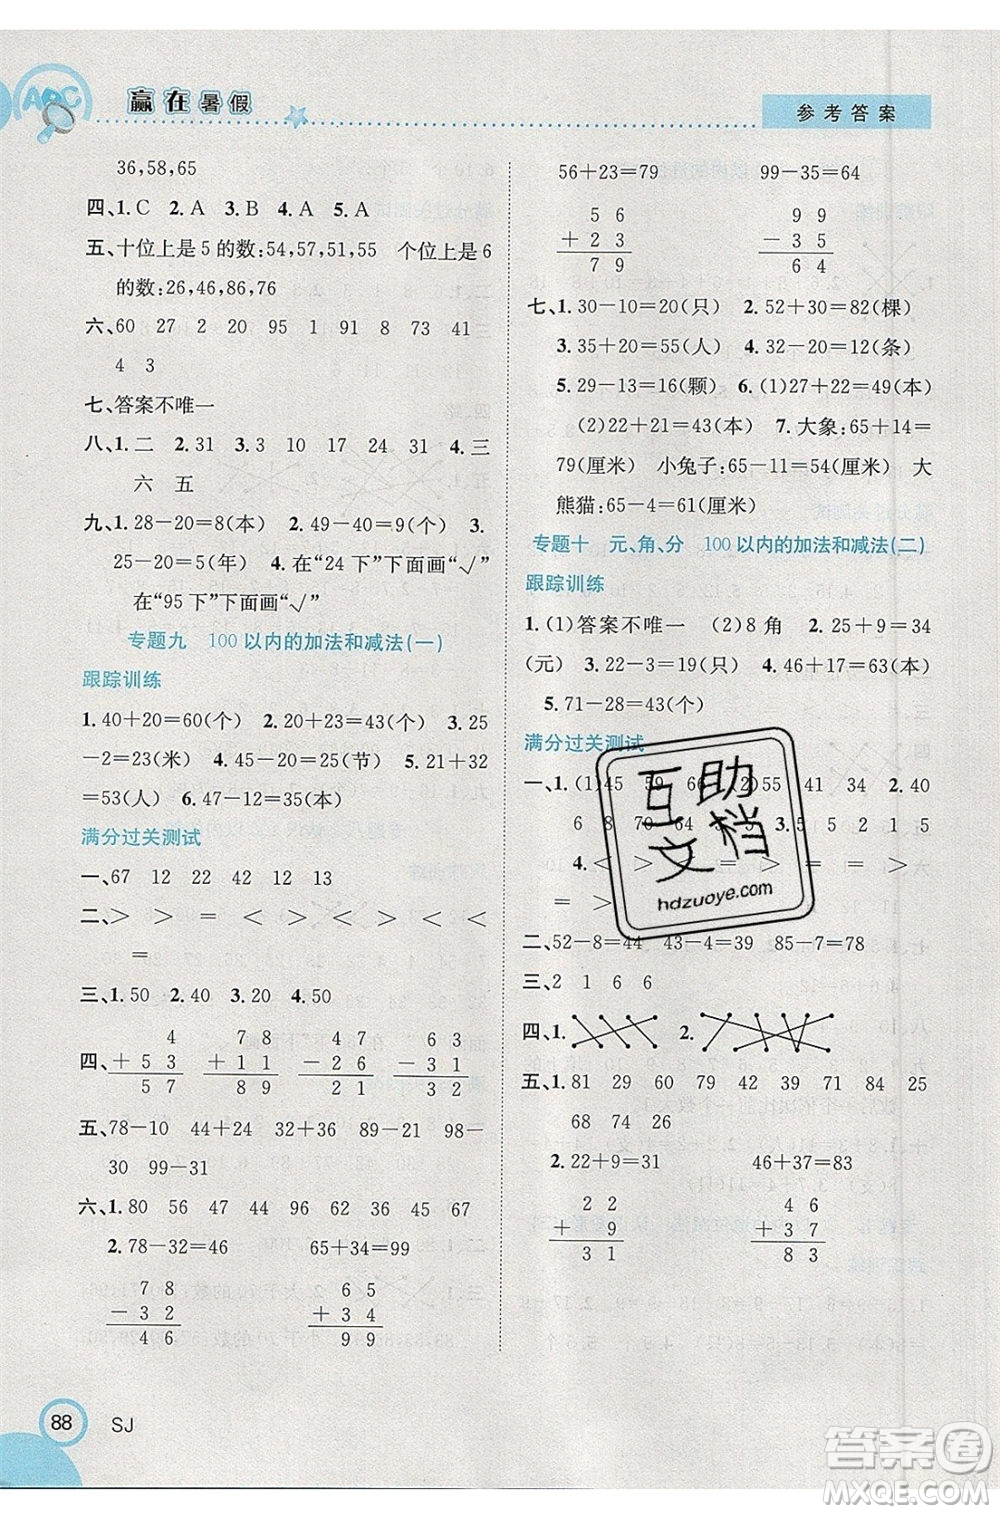 ABC
赢在暑假
参考答案
36,58,65
四、1.C 2.A 3.B 4.A 5.A
五、十位上是5的数:54,57,51,55 个位上是6
的数:26,46,86,76
六、60 27 2 20 95 1 91 8 73 41
4 3
七、答案不唯一
八、1.二 2.31 3.3 10 17 24 31 4.三
六 五
九、1.28－20=8(本) 2.49－40=9(个) 3.
25－20=5(年) 4.在“24下”下面画“√”
在“95下”下面画“√”
专题九 100以内的加法和减法(一)
跟踪训练
1.40+20=60(个) 2.20+23=43(个) 3.25
－2=23(米) 4.45－20=25(节) 5.21+32
=53(人) 6.47－12=35(个)
满分过关测试
一、67 12 22 42 12 13
二、＞ ＞ = ＜ ＞ ＜ ＞ ＜ ＜
=
三、1.50 2.40 3.20 4.50
四、
4
+ 5 3
5 7
7 8
+ 1 1
8 9
4 7
－ 2 6
2 1
6 3
－ 3 1
3 2
五、78－10 47+24 32+36 89－21 98－
30 99－31
六、1.94 15 97 32 46 56 45 96 67
2.78－32=46 65+34=99
7 8
－ 3 2
4 6
6 5
+ 3 4
9 9
88
SJ
56+23=79 99－35=64
5 6
+ 2 3
7 9
9 9
－ 3 5
6 4
七、1.30－10=20(只) 2.52+30=82(棵)
3.35+20=55(人) 4.32－20=12(条)
5.29－13=16(颗) 6.(1)27+22=49(本)
(2)22+21=43(本) 7.大象:65+14=
79(厘米) 小兔子:65－11=54(厘米) 大
熊猫:65－4=61(厘米)
专题十 元、角、分 100以内的加法和减法(二)
跟踪训练
1.(1)答案不唯一 (2)8角 2.25+9=34
(元) 3.22－3=19(只) 4.46+17=63(本)
5.71－28=43(个)
满分过关测试
一、1.(1)45 59 (2)55 45 34 2.40
6 8 70 64 5 3.5 4 2 1 5
4.＜ ＞ = ＞
＞ = ＜ =
二、52－8=44 43－4=39 85－7=78
三、2 1 6 6
四、1. 2.
五、1.81 29 80 40 39 71 84 25
68 74 26
2.22+9=31 46+37=83
2 2
+ 9
3 1
4 6
+ 3 7
8 3
互助文档
hdzuoye.com
答案圈
MXQE.COM